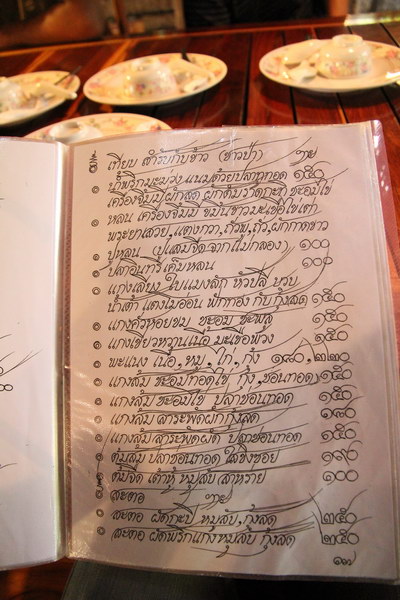 เทียบ สำรับกับข้าว (ชาวป่า)
น้ำพริกมะม่วง แนมด้วยปลาทูทอด ๑๕๐
เครื่องจิ้ม ผักสด ผักต้มราดกะทิ ชะอมไข่
หลน เครื่องจิ้มมี ขมิ้นขาว มะเขือไข่เต่า
พระยาเสวย, แตงกวา, ถั่วพู, ถั่ว, ผักกาดขาว
ปูหลน (ปูแสมจืด จากแม่กลอง) ๑๐๐
ปลาอินทรีเค็มหลน ๑๐๐
แกงเลียง ใบแมงลัก หัวปลี บวบ
น้ำเต้า แตงโมอ่อน ฟักทอง กับกุ้งสด ๑๕๐
แกงคั่วหอยขม ชะอม ชะพลู ๑๕๐
แกงเขียวหวานเนื้อ มะเขือพวง ๑๕๐
พะแนง เนื้อ, หมู, ไก่, กุ้ง ๑๘๐, ๒๒๐
แกงส้ม ชะอมทอดไข่ กุ้ง, ช่อนทอด ๑๕๐
แกงส้ม ชะอมไข่ ปลาช่อนทอด ๑๕๐
แกงส้ม สาระพัดผัก กุ้งสด ๑๘๐
แกงส้ม สาระพัดผัด ปลาช่อนทอด ๑๕๐
ต้มส้ม ปลาช่อนทอด ใส่ขิงซอย ๑๙๐
ต้มจืด เต้าหู้ หมูสับ สาหร่าย ๑๐๐
สะตอ
สะตอ ผัดกะปิ หมูสับ, กุ้งสด ๒๕๐
สะตอ ผัดพริกแกง หมูสับ กุ้งสด ๒๕๐